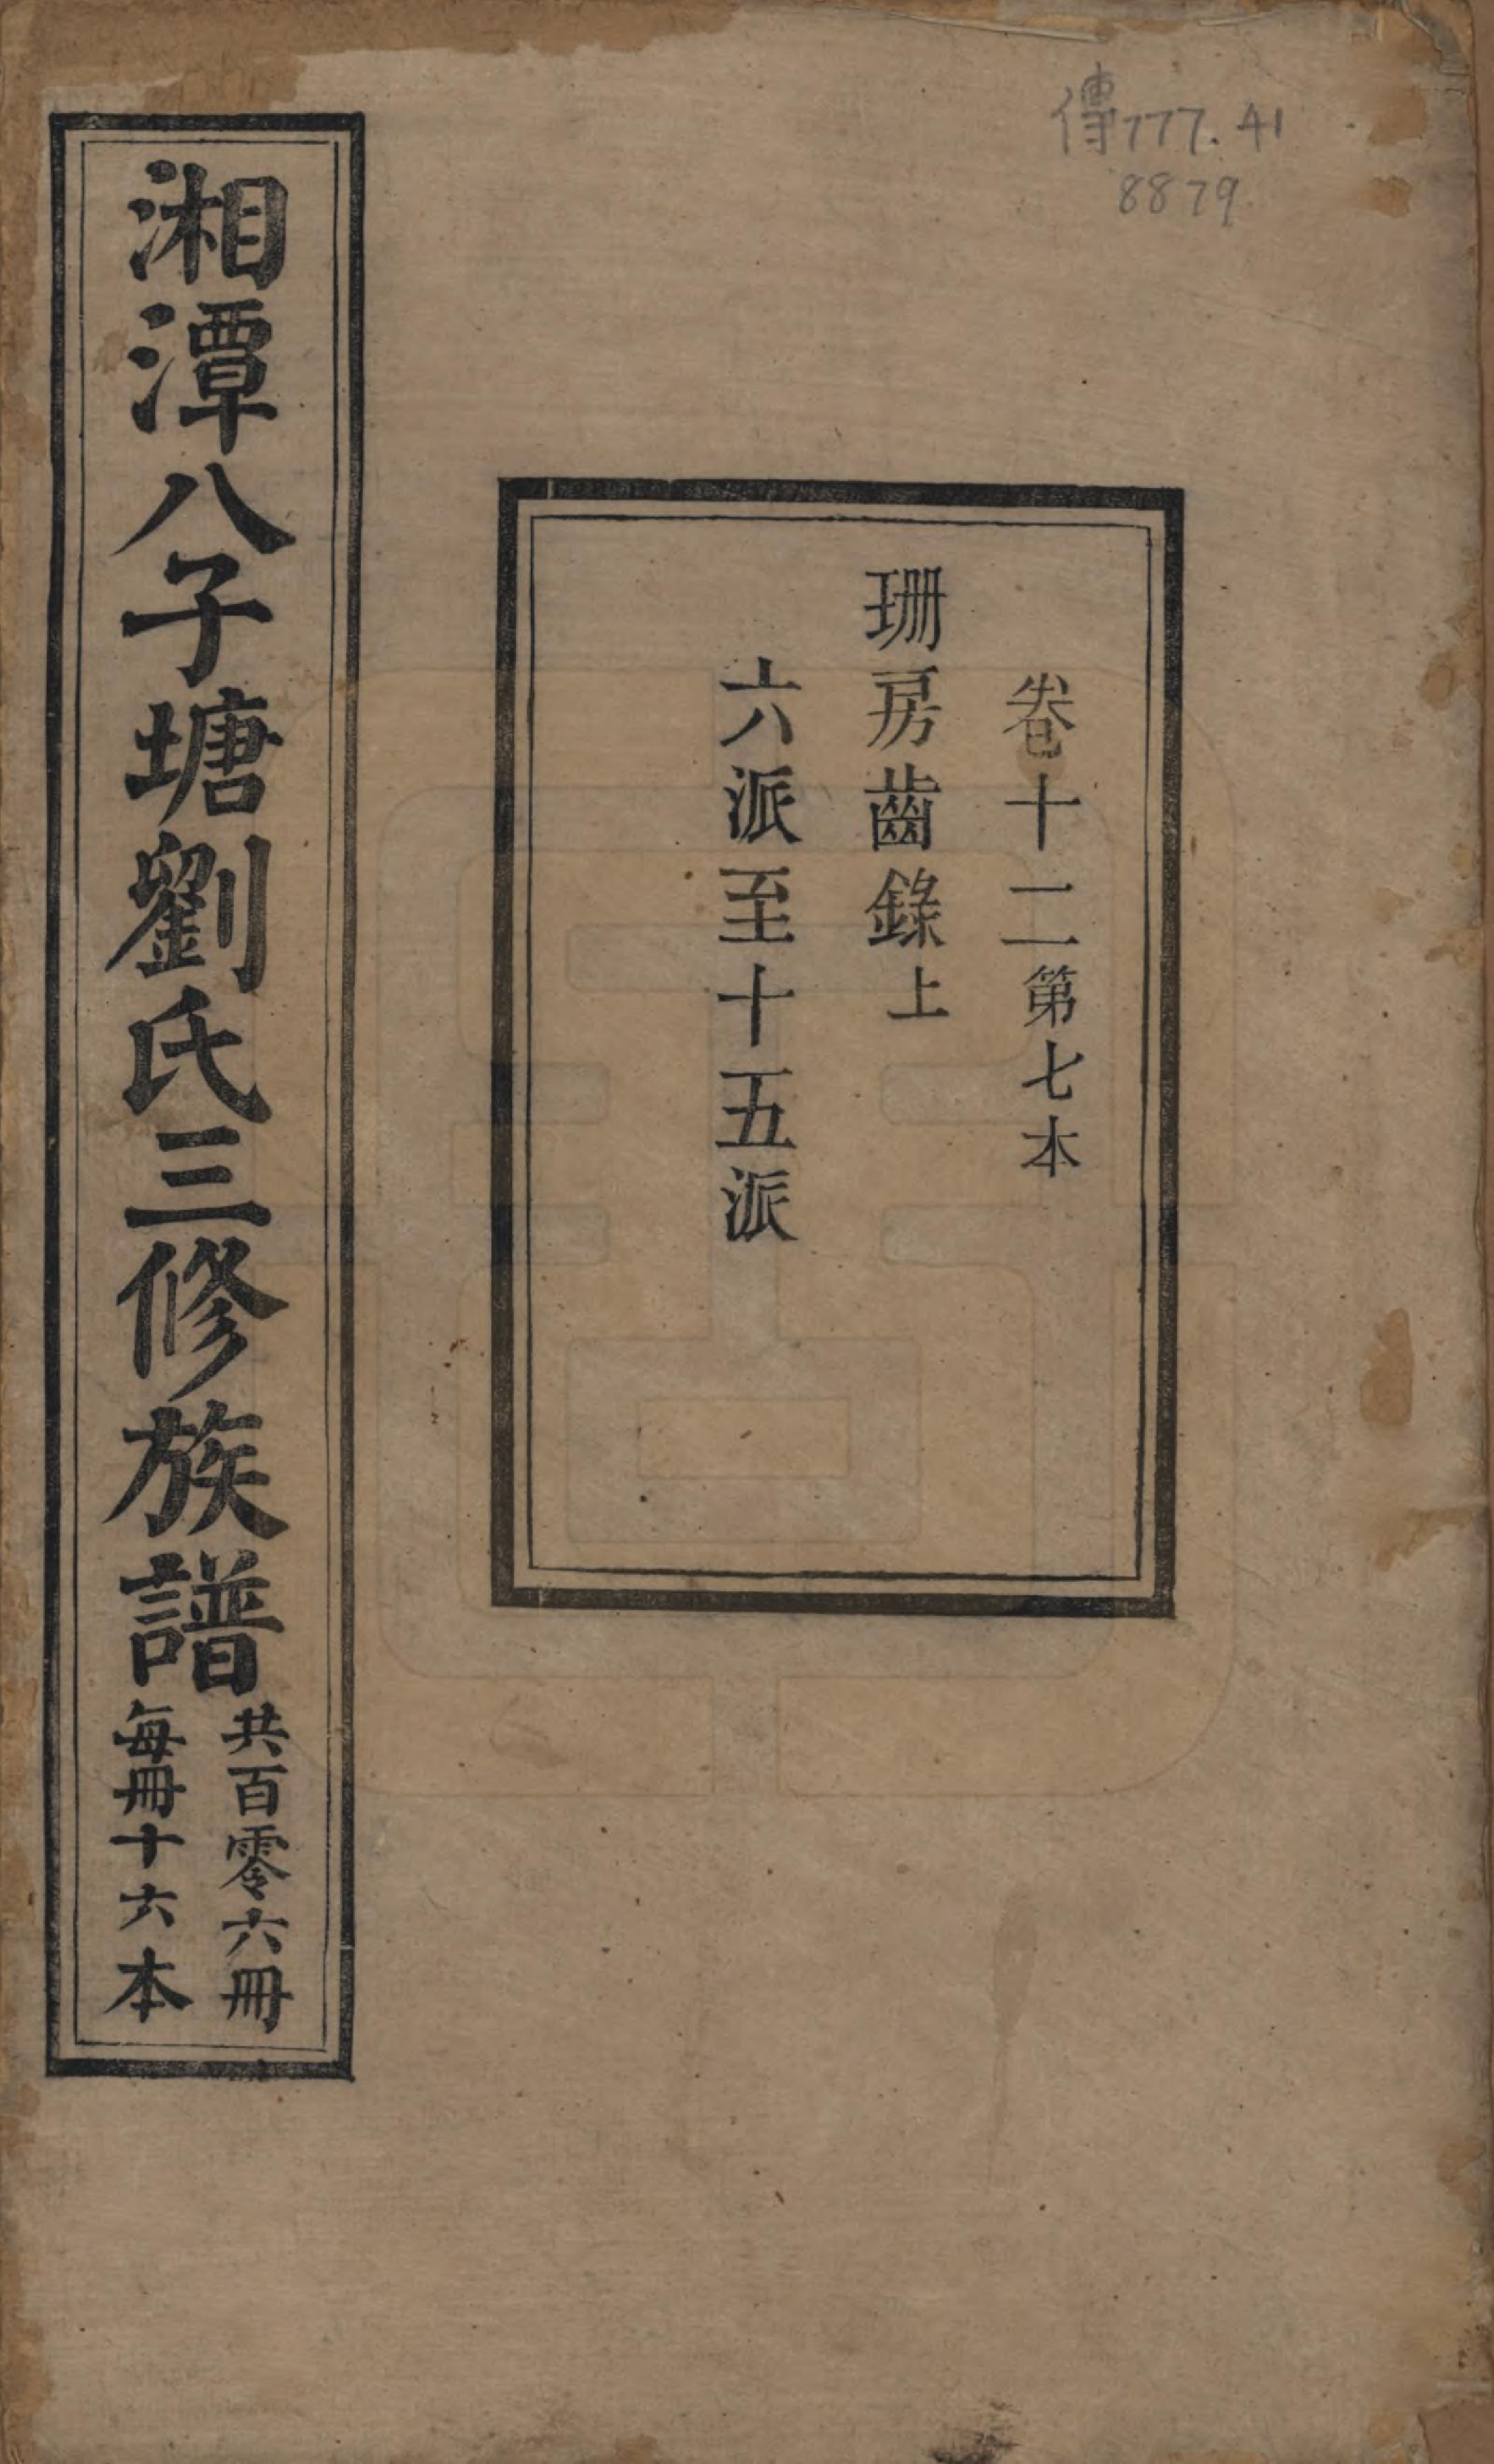 傳777.41
8879
卷十二第七本
珊房齒錄上
六派至十五派
湘潭八子塘劉氏三修族譜
共百零六冊
每冊十六本